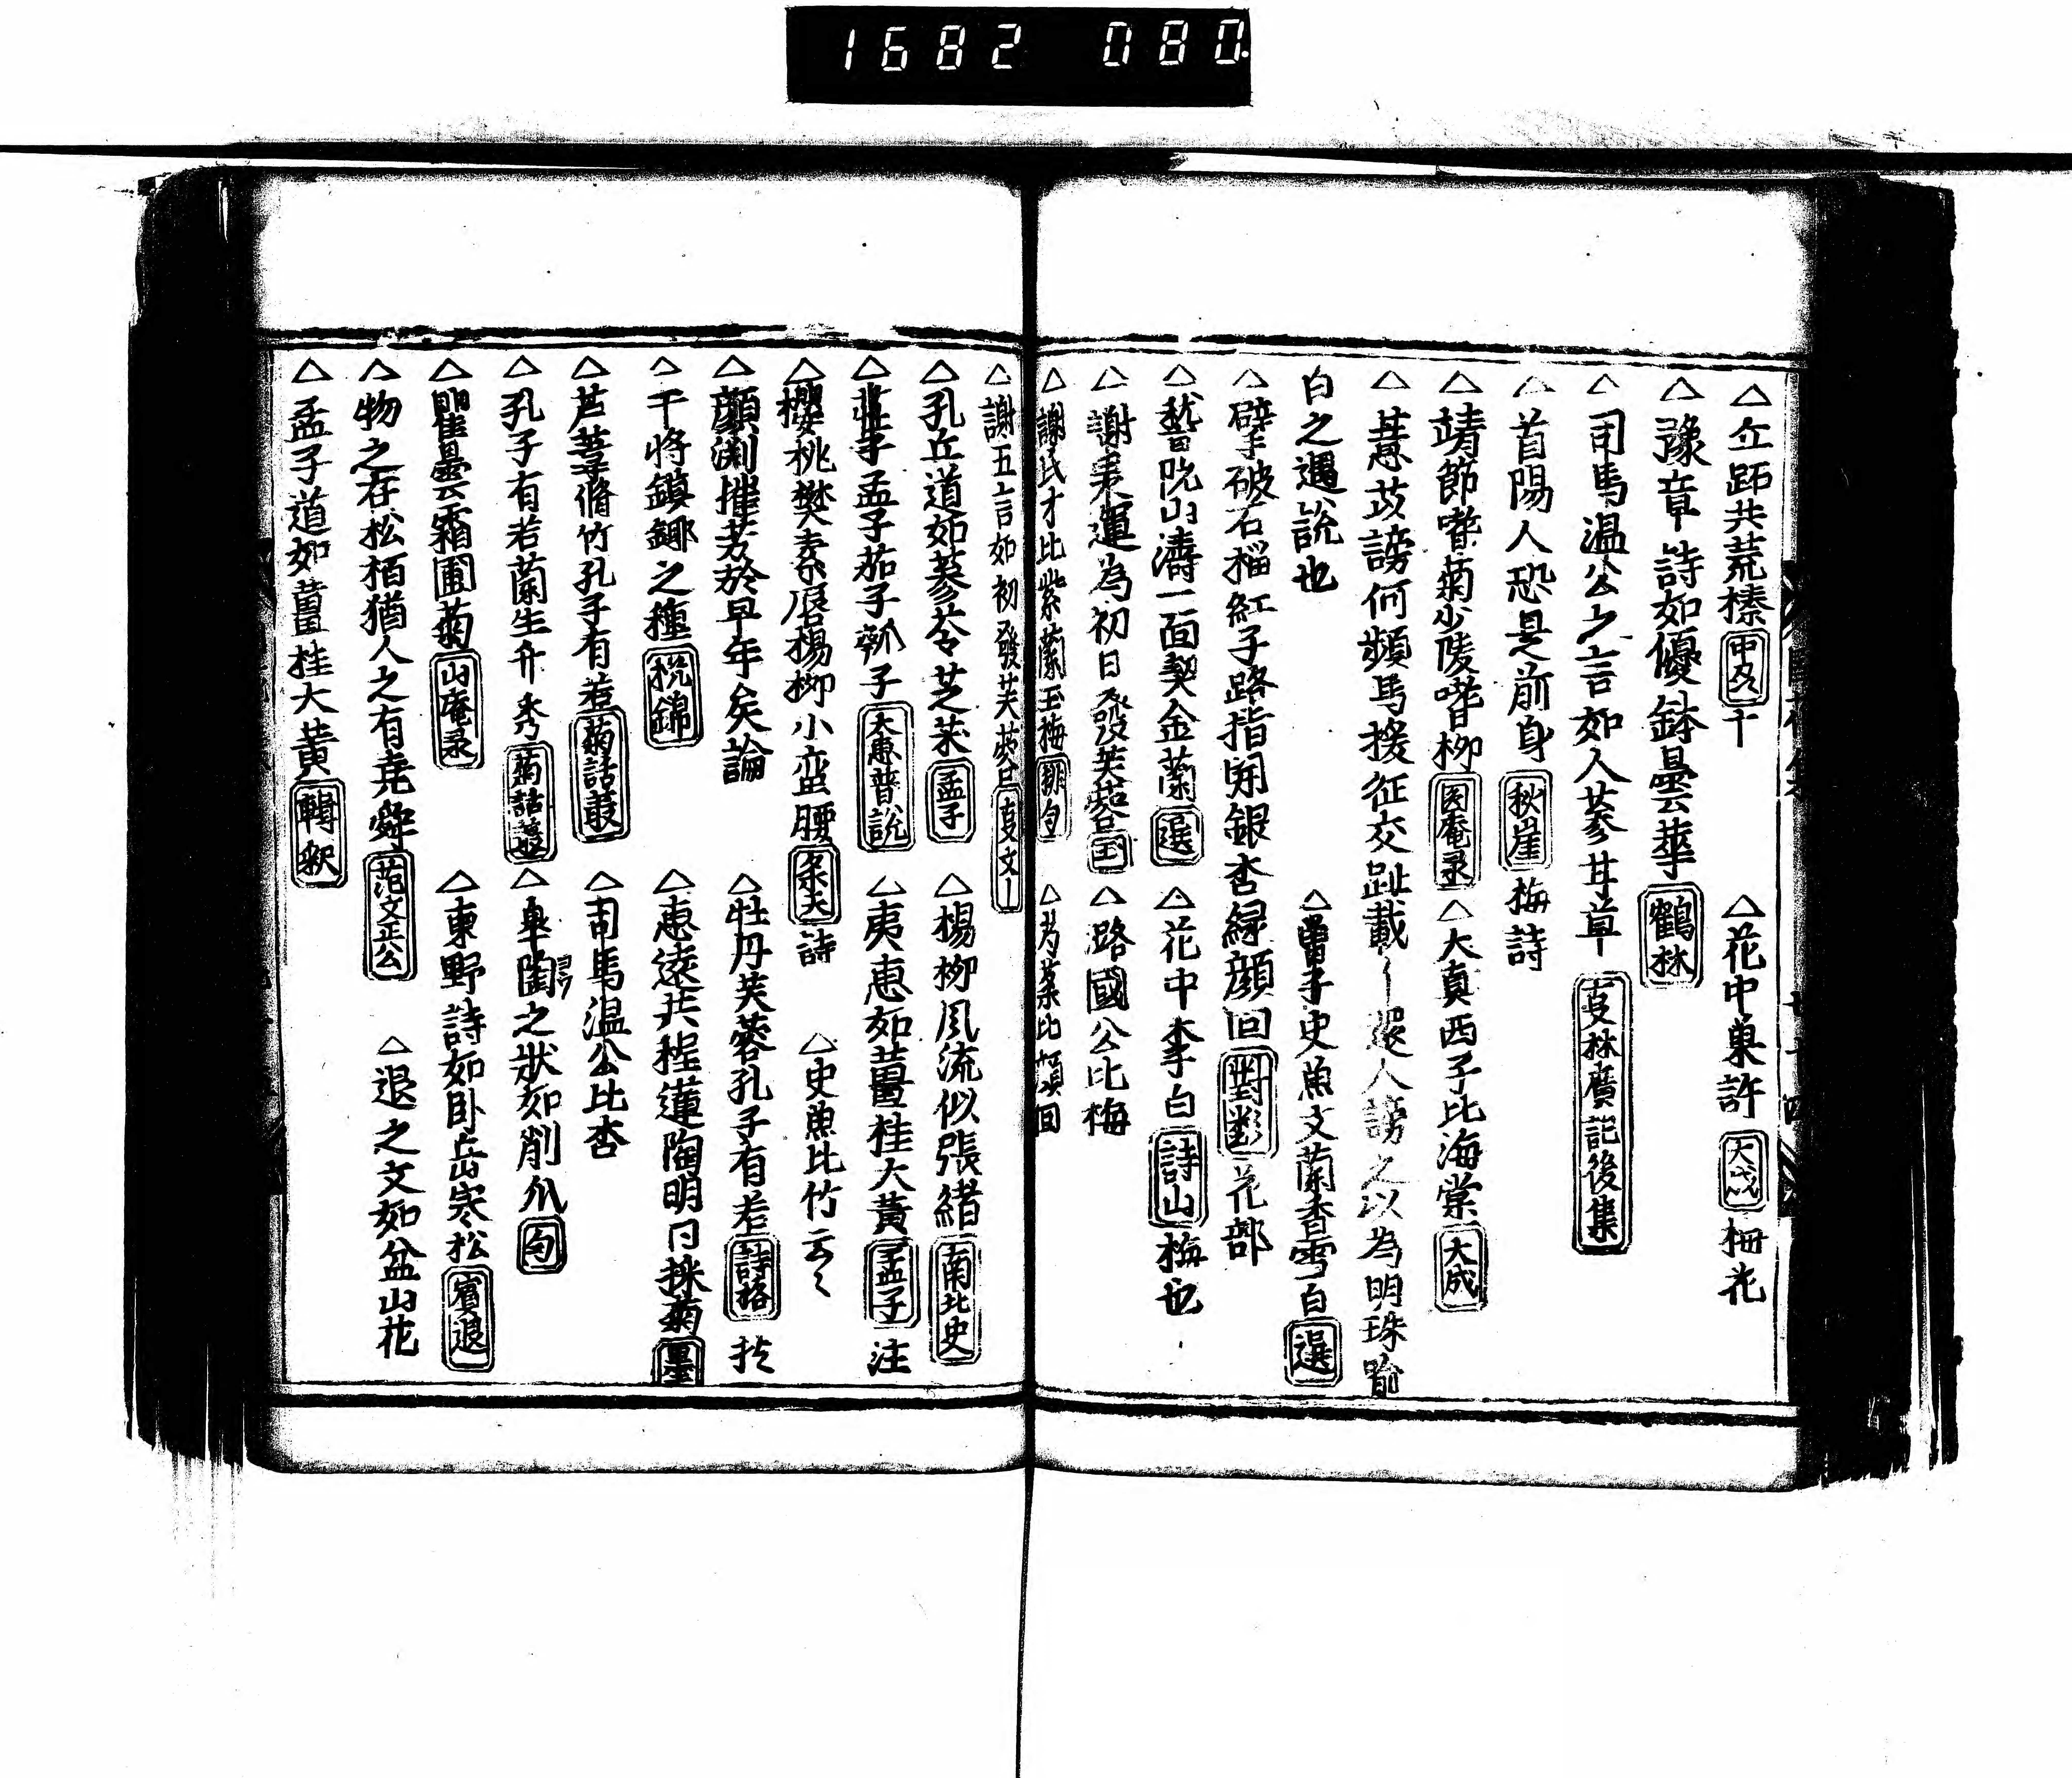 1682 080
△丘跖共荒榛 △花中巣許 大成 梅花
△豫章詩如優鉢曇華 鶴林
△司馬温公之言如人參甘草 事林廣記後集
△首陽人恐是前身 秋崖 梅詩
△靖節嗜菊少陵嗜柳 △大真西子比海棠 大成
△薏苡謗何頻馬援征交趾載還人謗之以為明珠
白之遇説也 △曽子史魚文蘭香雪白 選
△擘破石榴紅子路指開銀杏緑顔回 對類 花部
△嵆阮山濤一面契金蘭 選 △花中李白 詩山 梅也
△謝 運為初日發芙蓉 △路國公比梅
△謝氏才比紫蘭玉梅 △ 比顔回
△謝五言如初發芙蓉
△孔丘道如蓡苓芝朮 孟子 △楊柳風流似張緒 南北史
△荘子孟子茄子瓢子 大惠普説 △夷惠如薑桂大黄 孟子 注
△櫻桃樊素唇楊柳小蛮腰 詩 △史魚比竹云々
△顔渕摧芳於早年矣論 △牡丹芙蓉孔子有若 詩格
△干將鎮鎁之種 △惠遠共程蓮陶明日採菊
△芦菩脩竹孔子有若 菊話 △司馬温公比杏
△孔子有若蘭生并秀 菊話 △皐陶之状如削爪 句
△瞿曇霜圃菊 山庵录 △東野詩如卧岳寒松 賓退
△物之在松栢猶人之有堯舜 范文正公 △退之文如盆山花
△孟子道如薑桂大黄 輯釈